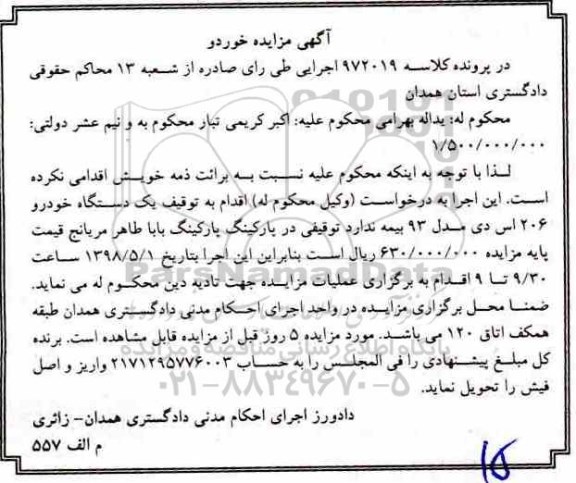 آگهی مزایده خوردو
در پرونده کلاسه ۹۷۲۰۱۹ اجرایی طی رای صادره از شعبه ۱۳ محاکم حقوقی
دادگستری استان همدان
محکوم له: یداله بهرامی محکوم علیه: اکبر کریمی تبار محکوم به و نیم عشر دولتی:
۱/۵۰۰/۰۰۰/۰۰۰
لذا با توجه به اینکه محکوم علیه نسبت به برائت ذمه خویش اقدامی نکرده
است. این اجرا به درخواست (وکیل محکوم له) اقدام به توقیف یک دستگاه خودرو
۲۰۶ اس دی مدل ۹۳ بیمه ندارد توقیفی در پارکینگ پارکینگ بابا طاهر مریانج قیمت
پایه مزایده ۶۳۰/۰۰۰/۰۰۰ ریال است بنابراین این اجرا بتاریخ ۱۳۹۸/۵/۱ ساعت
۹/۳۰ تا ۹ اقدام به برگزاری عملیات مزایده جهت تادیه دین محکوم له می نماید.
ضمنا محل برگزاری مزایده در واحد اجرای احکام مدنی دادگستری همدان طبقه
همکف اتاق ۱۲۰ می باشد. مورد مزایده ۵ روز قبل از مزایده قابل مشاهده است. برنده
کل مبلغ پیشنهادی را فی المجلس را به حساب ۲۱۷۱۲۹۵۷۷۶۰۰۳ واریز و اصل
فیش را تحویل نماید.
دادورز اجرای احکام مدنی دادگستری همدان- زائری
م الف ۵۵۷
ParsNamadData
پایگاه اطلاع رسانی مناقصه و مزایده
۰۲۱-۸۸۳۴۹۶۷۰-۵